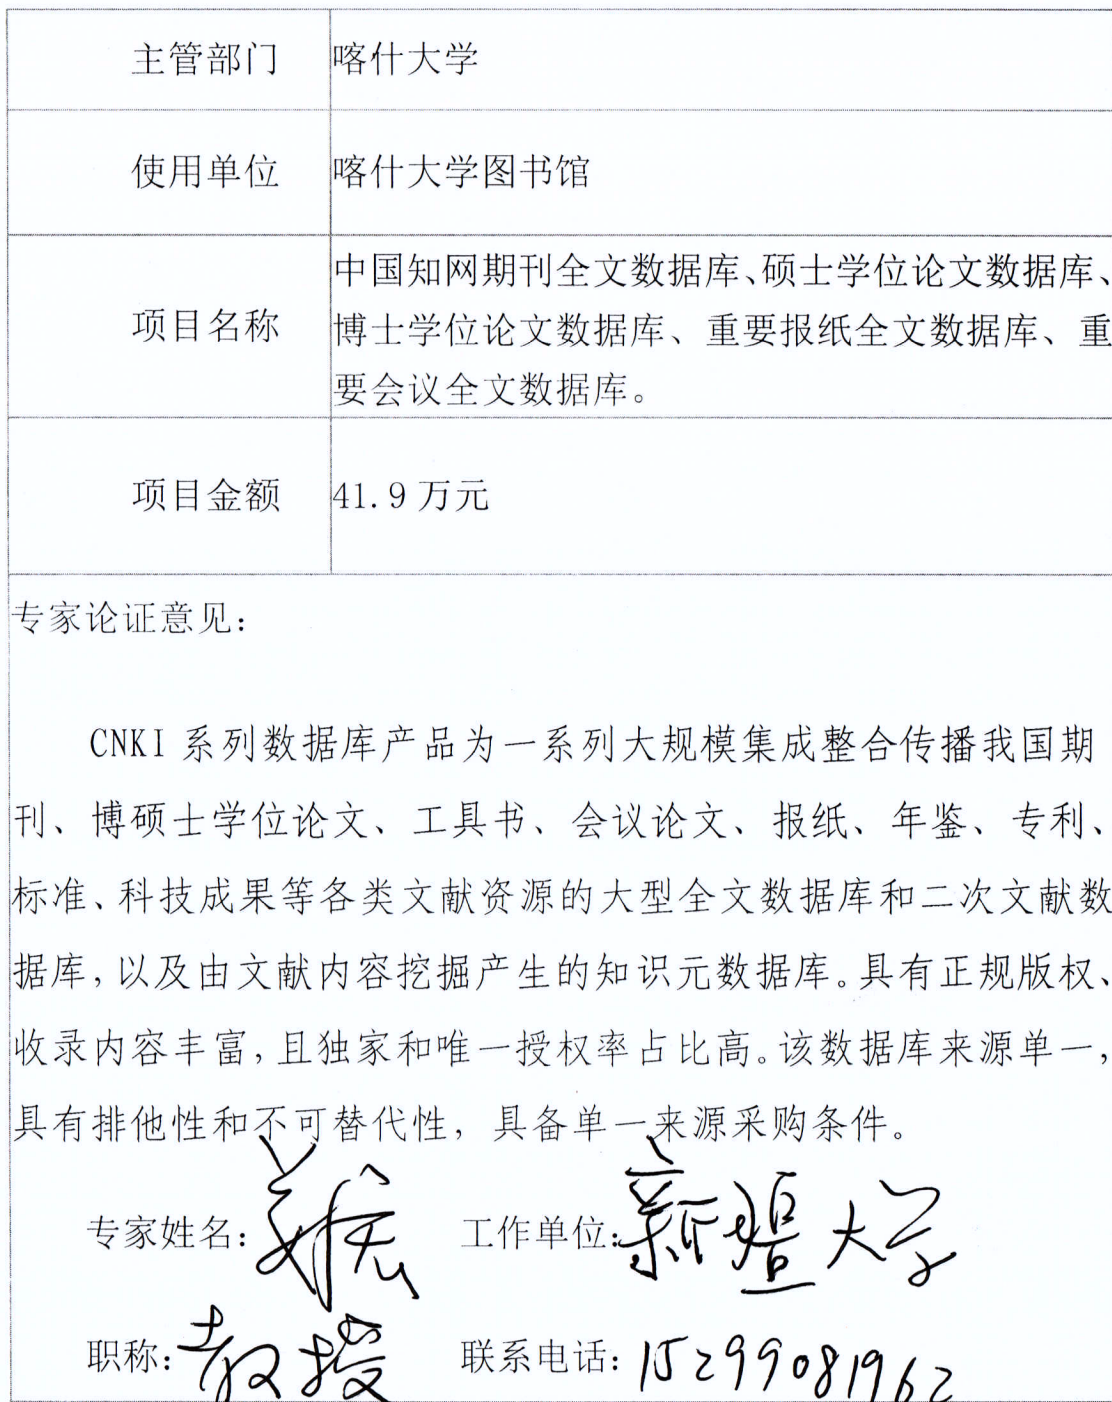 主管部门 喀什大学
使用单位 喀什大学图书馆
项目名称 中国知网期刊全文数据库、硕士学位论文数据库、
博士学位论文数据库、重要报纸全文数据库、重
要会议全文数据库。
项目金额 41.9万元
专家论证意见：
CNKI系列数据库产品为一系列大规模集成整合传播我国期
刊、博硕士学位论文、工具书、会议论文、报纸、年鉴、专利、
标准、科技成果等各类文献资源的大型全文数据库和二次文献数
据库，以及由文献内容挖掘产生的知识元数据库。具有正规版权、
收录内容丰富，且独家和唯一授权率占比高。该数据库来源单一，
具有排他性和不可替代性，具备单一来源采购条件。
专家姓名： 工作单位：新疆大学
职称：教授 联系电话：15299081962